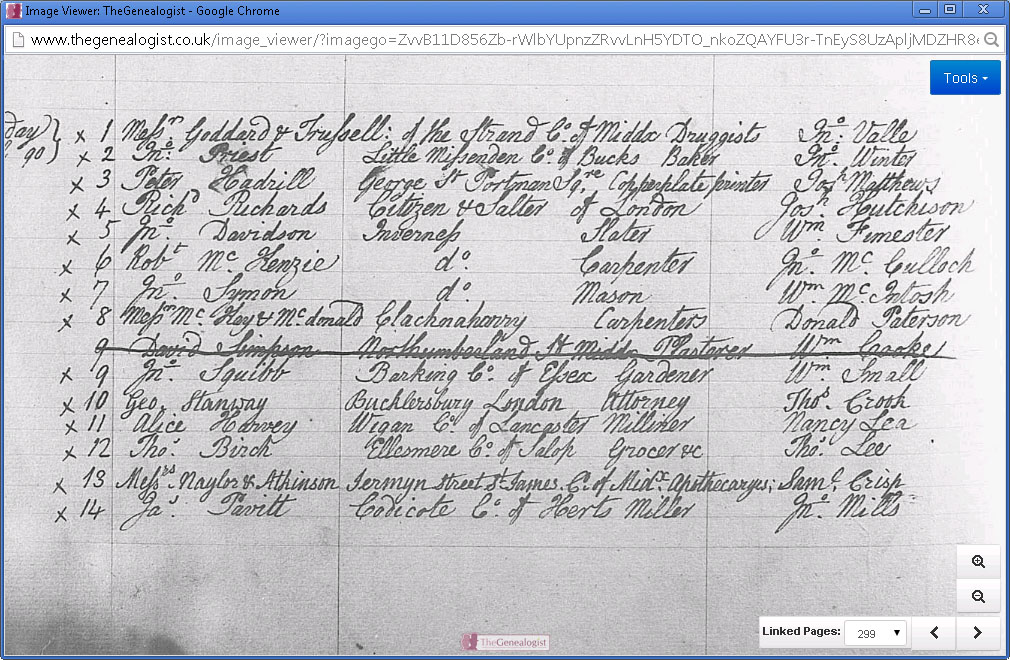 Image Viewer: TheGenealogist - Google Chrome
www.thegenealogist.co.uk/image_viewer/?imagego=ZvvB11D856Zb-rWlbYUpnzZRvvLnH5YDTO_nkoZQAYFU3r-TnEyS8UzApljMDZHR8
Tools
day
x 1 Messrs. Goddard & Trussell: of the Strand Co. of Middx Druggists Jno. Valle
x 2 Jno. Priest Little Missenden Co. of Bucks Baker Jno. Winter
x 3 Peter Hadrill George St Portman Sqre Copperplate printer Josh Matthews
x 4 Richd Richards Citizen & Salter of London Josh. Hutchison
x 5 Jno. Davidson Inverness Slater Wm Fimester
x 6 Robt Mc. Kenzie do. Carpenter Jno. Mc. Culloch
x 7 Jno. Symon do. Mason Wm. McIntosh
x 8 Messrs Mc. Hay & Mcdonald Clachnaharry Carpenters Donald Paterson
9 David Simpson Northumberland St Middx Plasterer Wm Cooke
x 9 Jno. Squibb Barking Co. of Essex Gardener Wm Small
x 10 Geo. Stanway Bucklersbury London Attorney Thos. Crook
x 11 Alice Harvey Wigan Co. of Lancaster Milliner Nancy Lea
x 12 Thos. Birch Ellesmere Co. of Salop Grocer &c Thos. Lee
x 13 Messrs. Naylor & Atkinson Jermyn Street St James. Co. of Midx. Apothecarys; Saml. Crisp
x 14 Jas. Pavitt Codicote Co. of Herts Miller Jno. Mills
TheGenealogist
Linked Pages: 299